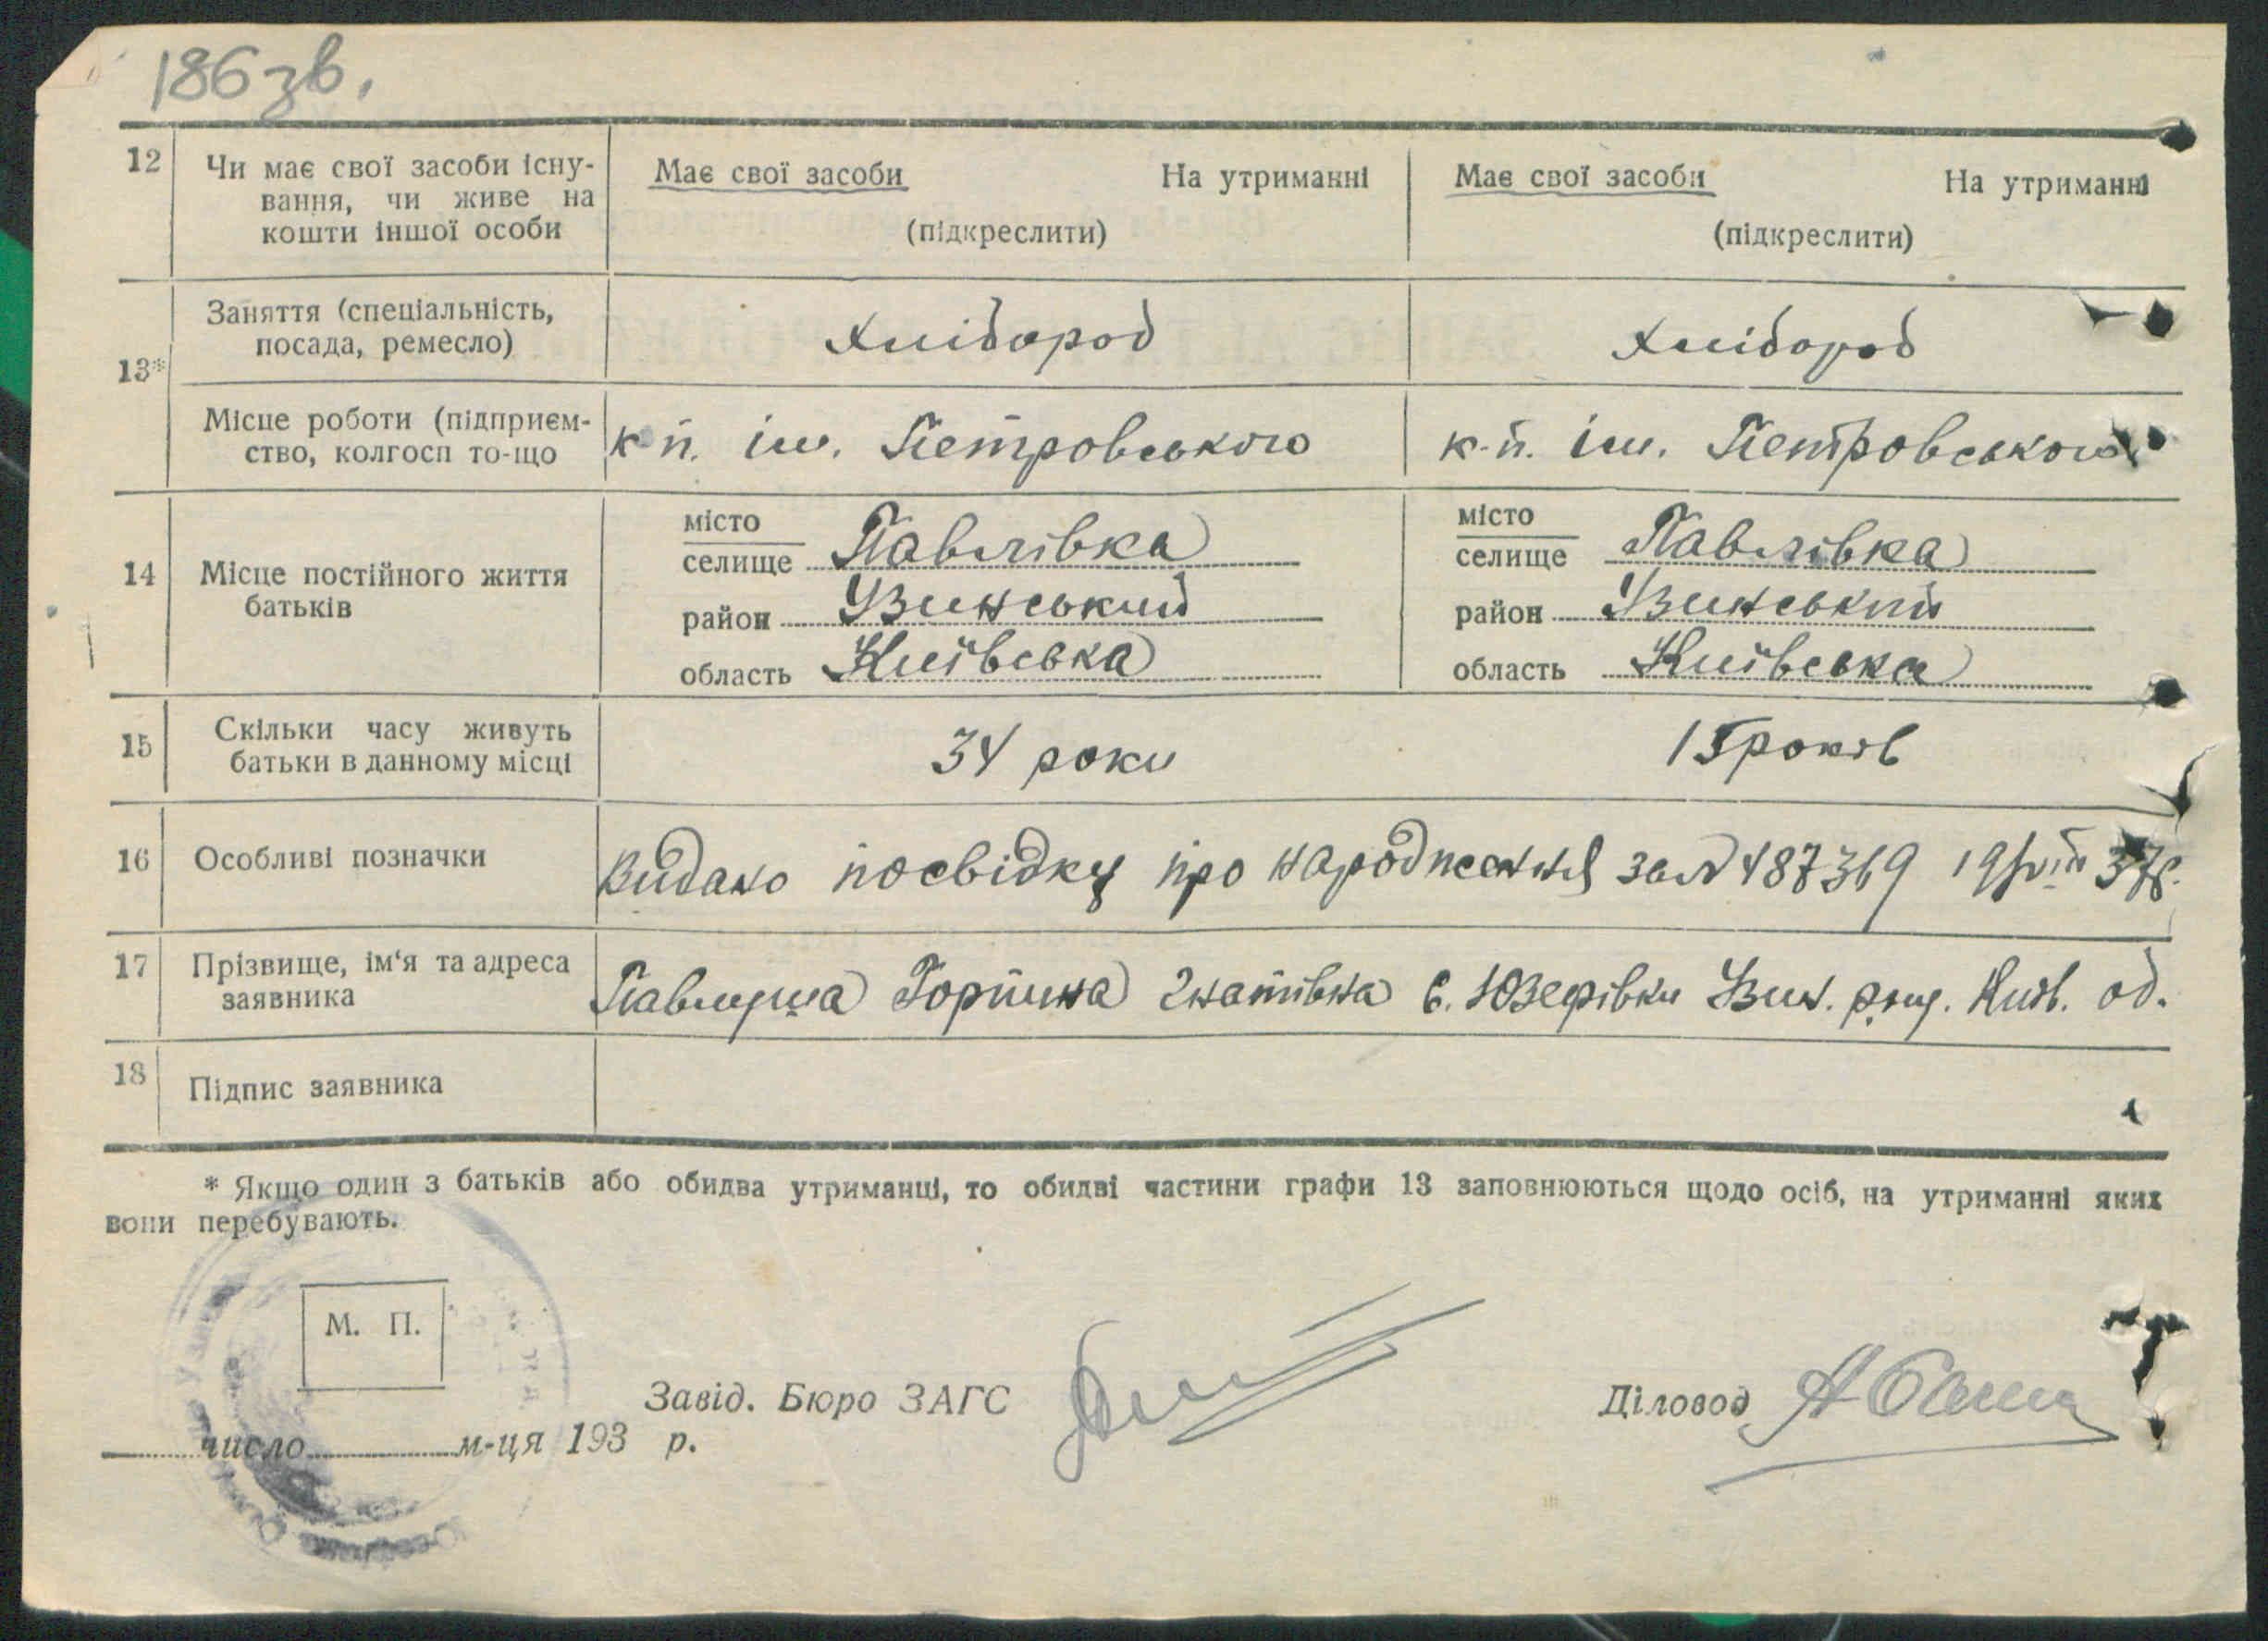 186 зв.
12 Чи має свої засоби існу- Має свої засоби На утриманні Має свої засоби На утриманні
вання, чи живе на
кошти іншої особи (підкреслити) (підкреслити)
13* Заняття (спеціальність, Хлібороб Хлібороб
посада, ремесло)
Місце роботи (підприєм- к-п. ім. Петровського к-п. ім. Петровського
ство, колгосп то-що
14 Місце постійного життя батьків
місто селище Павлівка місто селище Павлівка
район Узинський район Узинський
область Київська область Київська
15 Скільки часу живуть 34 роки 15 років
батьки в данному місці
16 Особливі позначки Видано посвідку про народження за № 487369 19 37р.
17 Прізвище, ім'я та адреса Горпина Гнатівна с. Юзефівки Узин. Київ. об.
заявника
18 Підпис заявника
* Якщо один з батьків або обидва утриманці, то обидві частини графи 13 заповнюються щодо осіб, на утриманні яких
вони перебувають.
М. П.
Завід. Бюро ЗАГС Діловод
число м-ця 193 р.